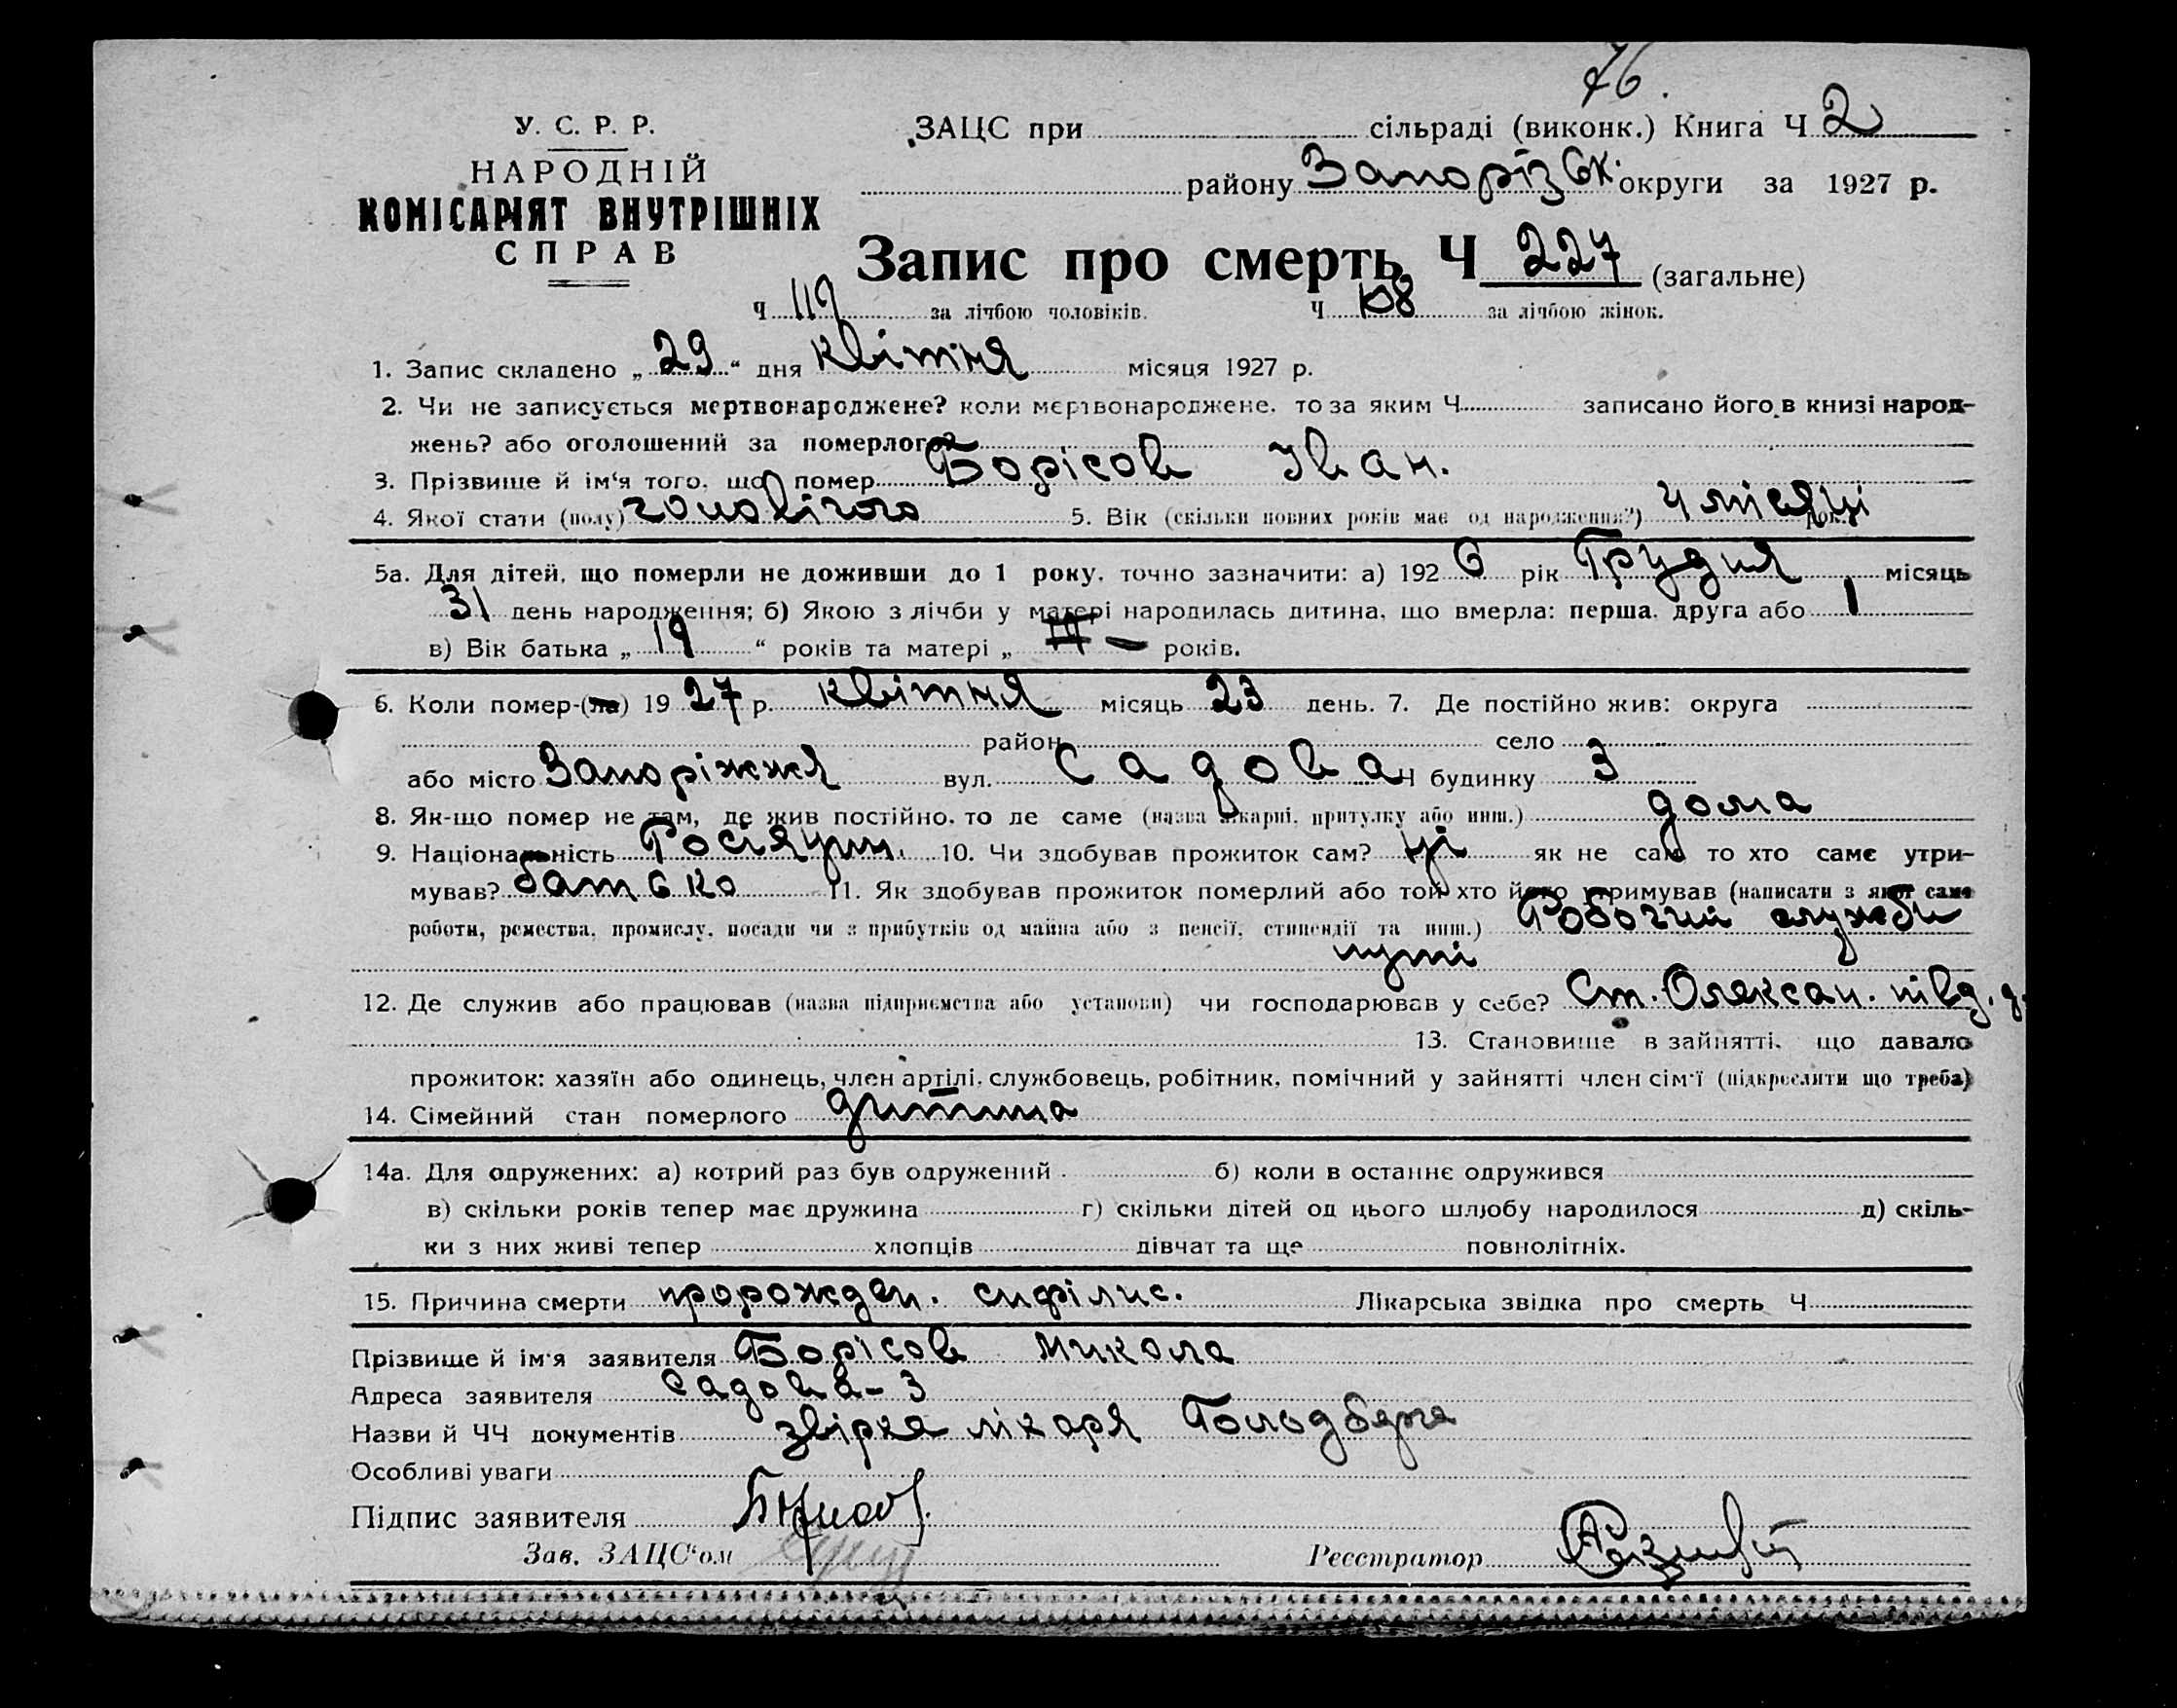 76.
У. С. Р. Р.
НАРОДНІЙ
КОМІСАРІЯТ ВНУТРІШНІХ
СПРАВ
ЗАЦС при сільраді (виконк.) Книга Ч 2
району Запорізьк. округи за 1927 р.
Запис про смерть Ч 227 (загальне)
Ч 119 за лічбою чоловіків. Ч 108 за лічбою жінок.
1. Запис складено „ 29 “ дня квітня місяця 1927 р.
2. Чи не записується мертвонароджене? коли мертвонароджене, то за яким Ч записано його в книзі народ-
жень? або оголошений за померлого?
3. Прізвище й ім‘я того, що помер Борісов Іван.
4. Якої стати (полу) чоловічого 5. Вік (скільки повних років має од народження?) 4 місяці рок.
5а. Для дітей, що померли не доживши до 1 року, точно зазначити: а) 192 6 рік Грудня місяць
31 день народження; б) Якою з лічби у матері народилась дитина, що вмерла: перша, друга або 1
в) Вік батька „ 19 “ років та матері „ — років.
6. Коли помер-(ла) 19 27 р. квітня місяць 23 день. 7. Де постійно жив: округа
район село
або місто Запоріжжя вул. Садова Ч будинку 3
8. Як-що помер не там, де жив постійно, то де саме (назва лікарні, притулку або инш.) дома
9. Національність Росіянин. 10. Чи здобував прожиток сам? ні як не сам то хто саме утри-
мував? батько 11. Як здобував прожиток померлий або той хто його утримував (написати з якої саме
роботи, ремества, промислу, посади чи з прибутків од майна або з пенсії, стипендії та инш.) Робочий служби
путі
12. Де служив або працював (назва підприємства або установи) чи господарював у себе? Ст. Олексан. півд. д.
13. Становище в зайнятті, що давало
прожиток: хазяїн або одинець, член артілі, службовець, робітник, помічний у зайнятті член сім‘ї (підкреслити що треба)
14. Сімейний стан померлого дитина
14а. Для одружених: а) котрий раз був одружений б) коли в останнє одружився
в) скільки років тепер має дружина г) скільки дітей од цього шлюбу народилося д) скіль-
ки з них живі тепер хлопців дівчат та ще повнолітніх.
15. Причина смерти пророжден. сифіліс. Лікарська звідка про смерть Ч
Прізвище й ім‘я заявителя Борісов Микола
Адреса заявителя Садова - 3
Назви й ЧЧ документів звірка лікаря Гольдберга
Особливі уваги
Підпис заявителя
Зав. ЗАЦС‘ом
Реєстратор